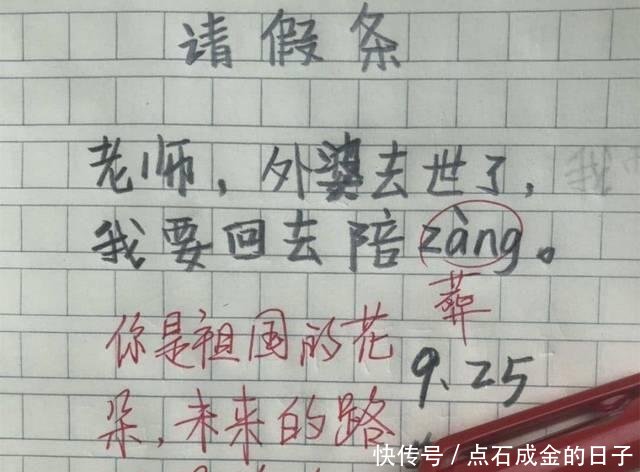 请假条
老师，外婆去世了，
我要回去陪zàng。
葬
你是祖国的花
9.25
朵，未来的路
快传号/点石成金的日子